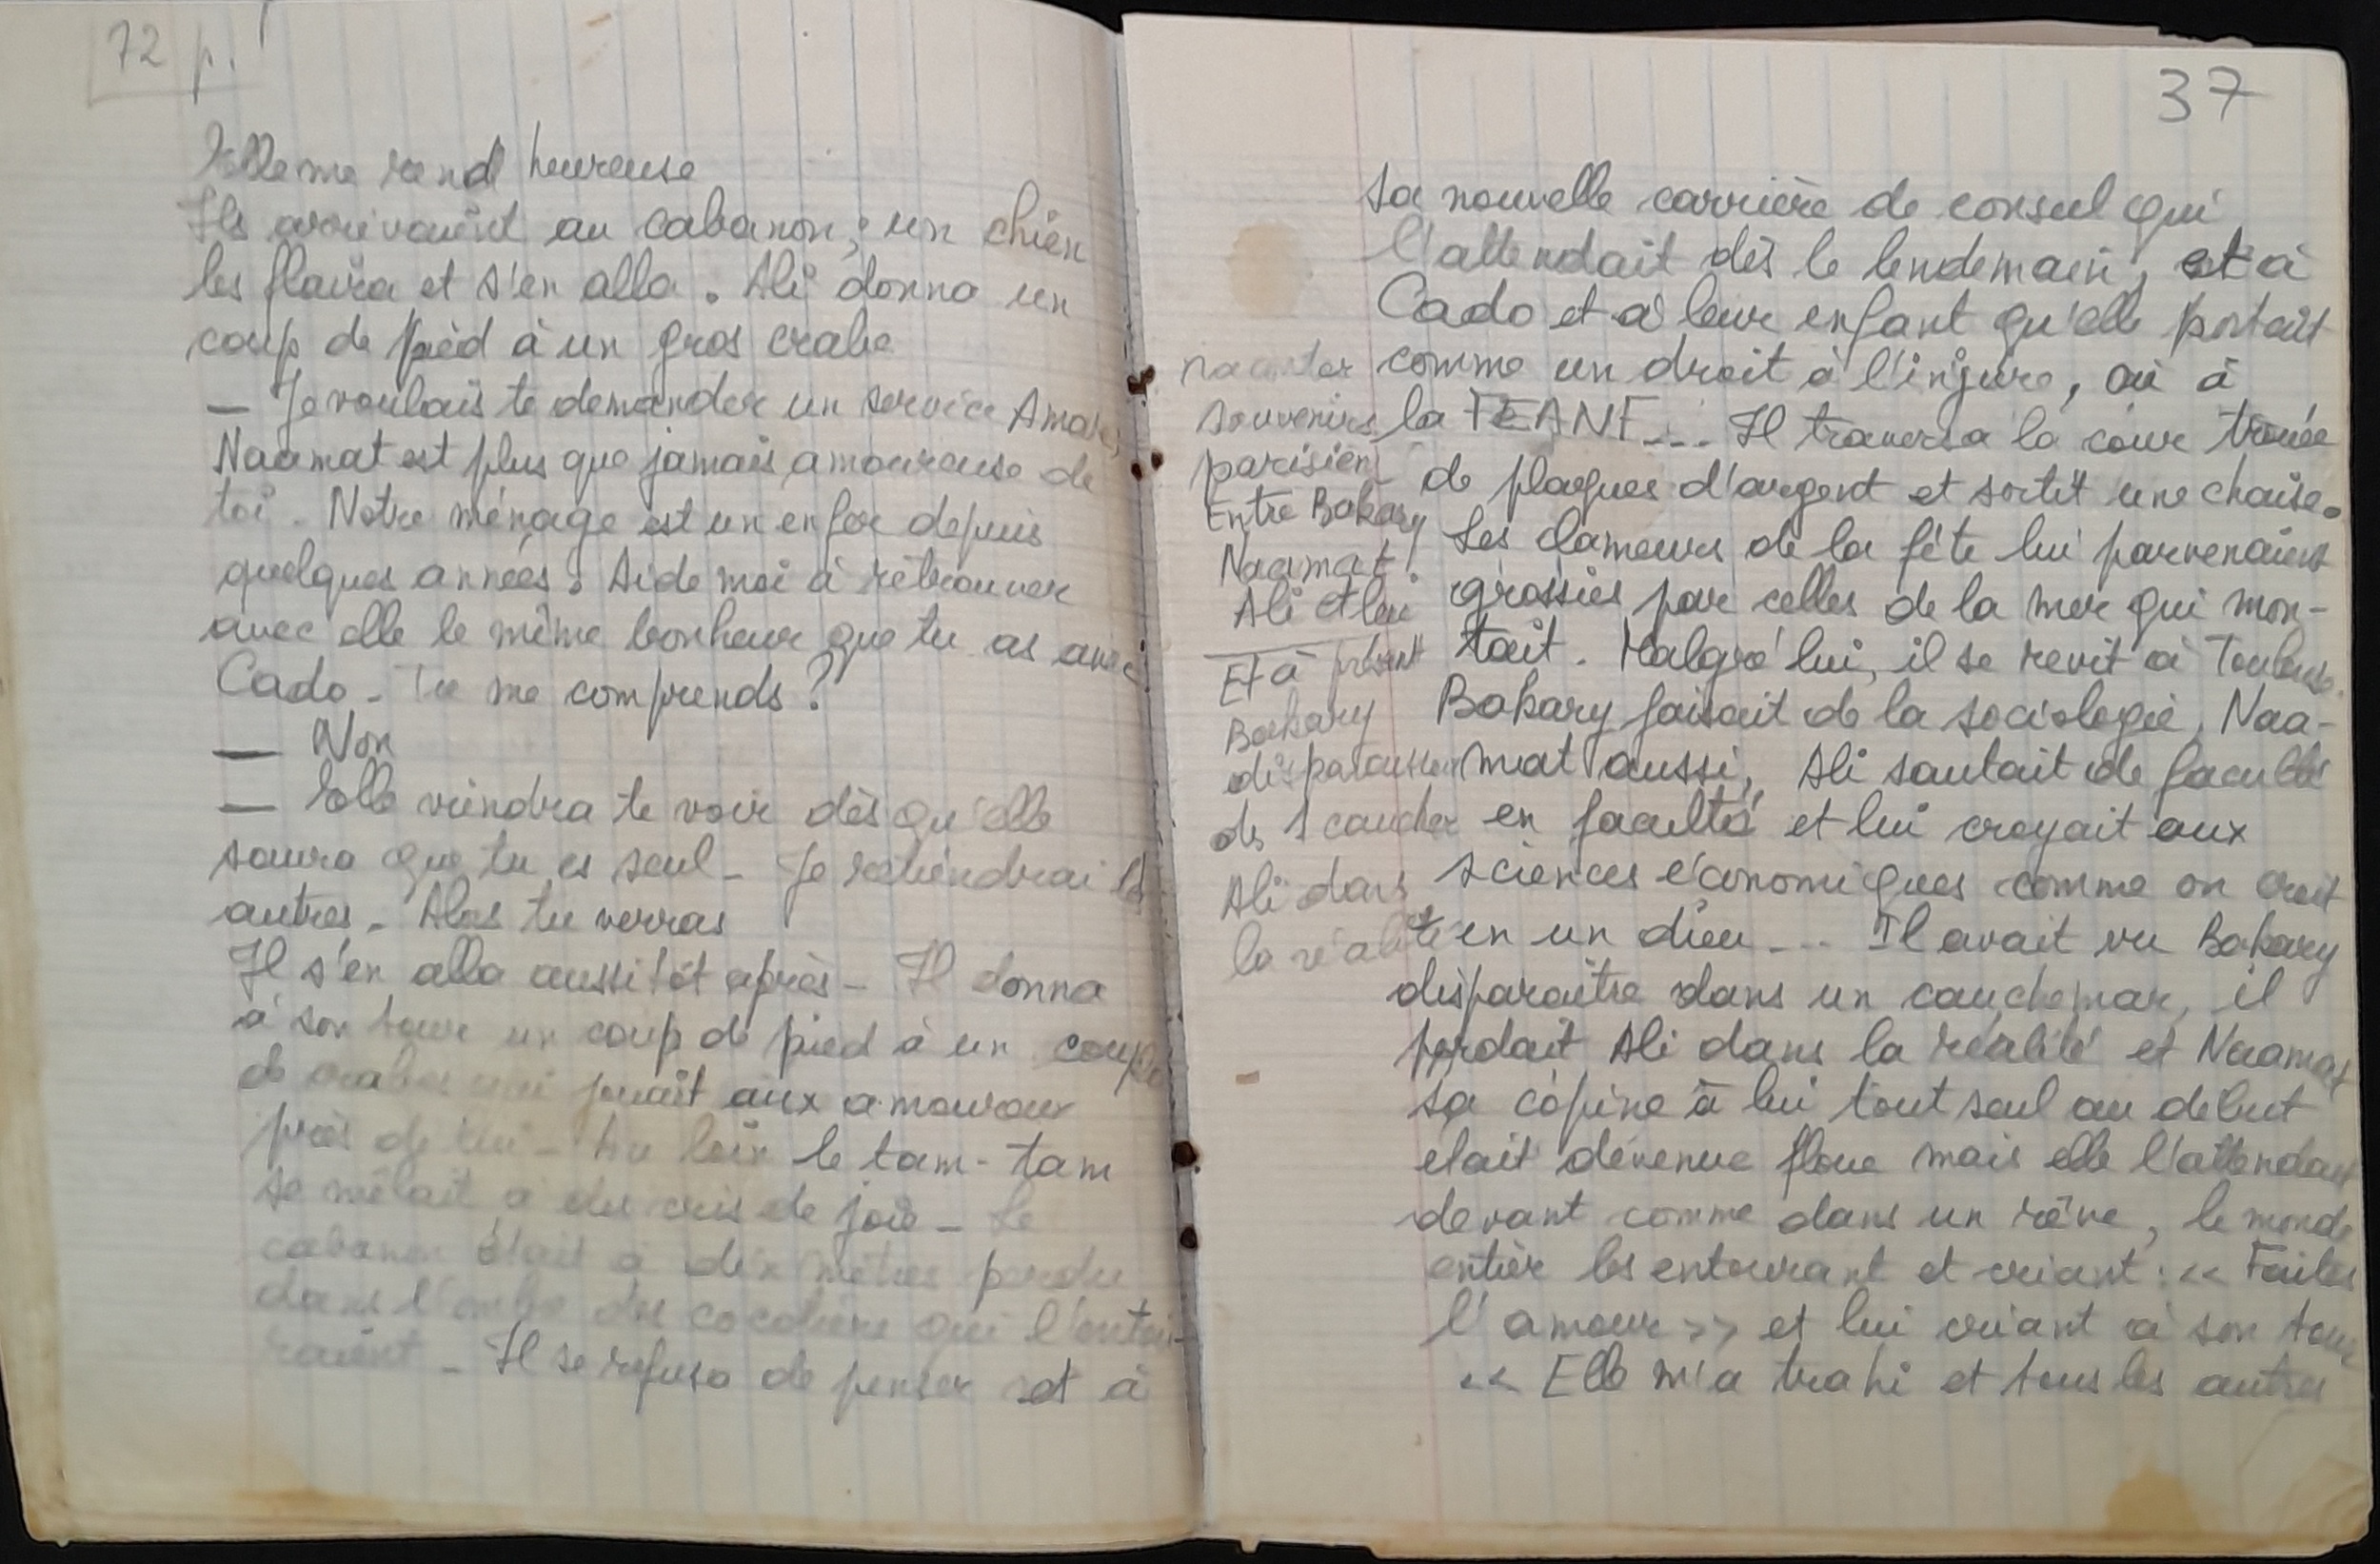 72 p.
Elle me rend heureuse
Ils arrivaient au cabanon ; un chien
les flaira et s'en alla. Ali donna un
coup de pied à un gros crabe
— Je voulais te demander un service Amar,
Naamat est plus que jamais amoureuse de
toi. Notre ménage est un enfer depuis
quelques années. Aide moi à retrouver
avec elle le même bonheur que tu as avec
Cado - Tu me comprends ?
— Non
— Elle viendra te voir dès qu'elle
saura que tu es seul - Je retiendrai les
autres. Alors tu verras
Il s'en alla aussitôt après - Il donna
à son tour un coup de pied à un couple
de crabes qui jouait aux amoureux
près de lui - Au loin le tam-tam
se mêlait à des cris de joie - Le
cabanon était à dix mètres perdu
dans l'ombre des cocotiers qui l'entou-
raient - Il se refusa de penser et à
37
sa nouvelle carrière de consul qui
l'attendait dès le lendemain, et à
Cado et à leur enfant qu'elle portait
comme un droit à l'injure, où à
la FEANF... Il traversa la cour trouée
de plaques d'argent et sortit une chaise.
Les clameurs de la fête lui parvenaient
grossies par celles de la mer qui mon-
tait. Malgré lui, il se revit à Toulouse.
Bakary faisait de la sociologie, Naa-
mat aussi, Ali sautait de faculté
en faculté et lui croyait aux
sciences économiques comme on croit
en un dieu... Il avait vu Bakary
disparaître dans un cauchemar, il
perdait Ali dans la réalité et Naamat
sa copine à lui tout seul au début
était dévenue floue mais elle l'attendait
devant comme dans un rêve, le monde
entier les entourant et criant : << Faites
l'amour >> et lui criant à son tour
<< Elle m'a trahi et tous les autres
souvenirs
parisiens
Entre Bakary
Naamat
Ali et lui
Et à présent
Bakary
ds 1 cauchemar
Ali dans
la réalité